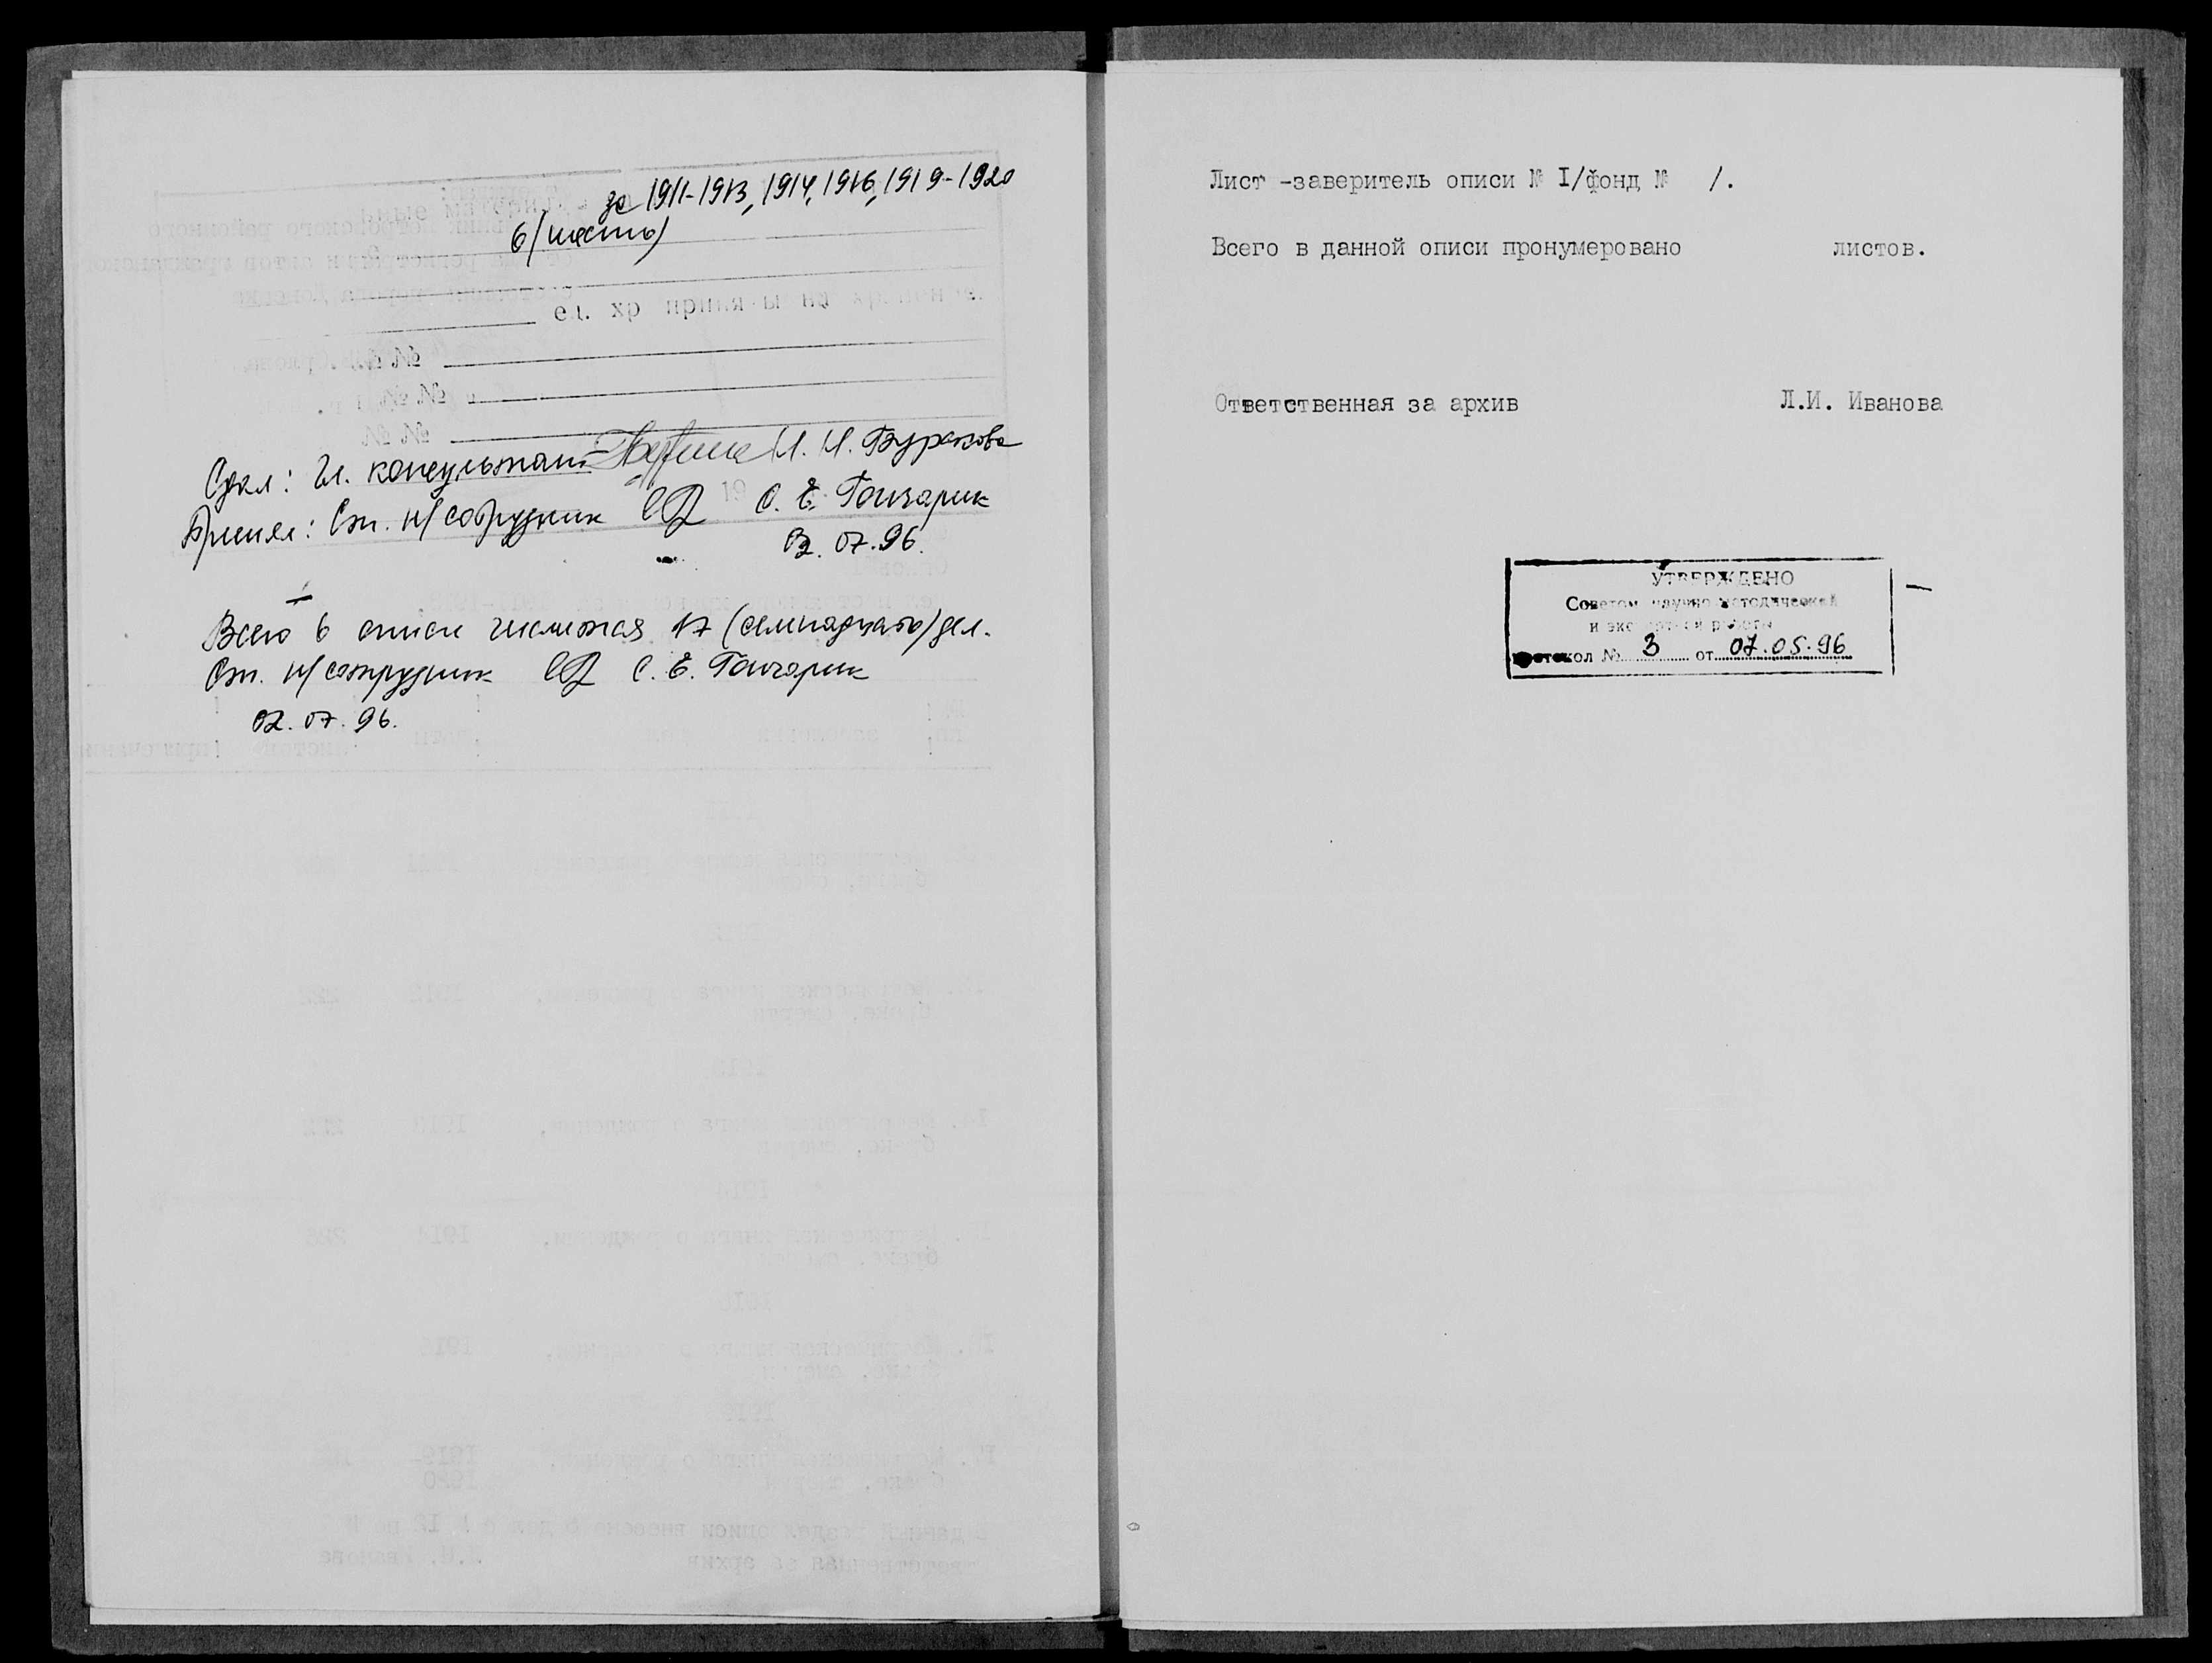 за 1911-1913, 1914, 1916, 1919-1920
6 (шесть)
ед. хр приняты на хранение
№ №
№ №
№ №
Сдал: Гл. консультант И. И. Буракова
Принял: Ст. н/сотрудник С. Е. Гончарик
02. 07. 96.
Всего в описи числится 17 (семнадцать) дел.
Ст. н/сотрудник С. Е. Гончарик
02. 07. 96.
Лист -заверитель описи № I/фонд № 1.
Всего в данной описи пронумеровано листов.
Ответственная за архив Л.И. Иванова
УТВЕРЖДЕНО
Советом научно-методической
и экспертной работы
протокол № 3 от 07.05.96